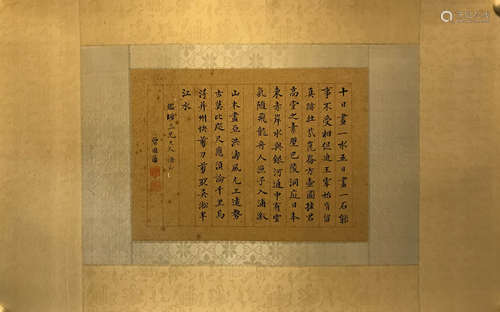 十日畫一水五日畫一石能
事不受相促迫王宰始肯留
真跡壯哉崑崙方壺圖挂君
高堂之素壁巴陵洞庭日本
東赤岸水與銀河通中有雲
氣隨飛龍舟人漁子入浦漵
山木盡亞洪濤風尤工遠勢
古莫比咫尺應須論千里焉
得并州快剪刀剪取吳淞半
江水
三兄大人
曾國藩